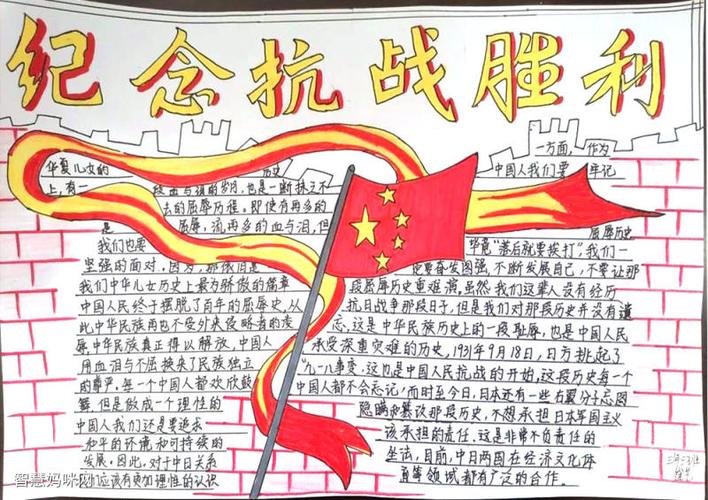 纪念抗战胜利
华夏儿女的历史
上,有一段血与泪的岁月,也是一断抹之不
去的屈辱历程。即使有再多的
是屈辱,流再多的血与泪,但
我们也要
坚强的面对,因为,那依旧是
我们中华儿女历史上最为骄傲的篇章
中国人民终于摆脱了百年的屈辱史,从
此中华民族再也不受外来侵略者的凌
辱,中华民族真正得以解放,中国人
用血泪与不屈换来了民族独立
的尊严,每一个中国人都欢欣鼓
舞,但是做成一个理性的
中国人我们还是要追求
和平的环境和可持续的
发展。因此,对于中日关系
们应该有更加理性的认识
一方面,作为
中国人我们要牢记
屈辱历史
毕竟“落后就要挨打”,我们一
定要奋发图强,不断发展自己,不要让那
段屈辱历史重难演,虽然,我们这辈人没有经历
抗日战争那段日子,但是我们对那段历史并没有遗
忘,这是中华民族历史上的一段耻辱,也是中国人民
承受深重灾难的历史,1931年9月18日,日方挑起了
“九一八事变,这也是中国人民抗战的开始,这段历史每一个
中国人都不会忘记!而时至今日,日本还有一些右翼分子意图
隐瞒和篡改那段历史,不想承担日本军国主义
该承担的责任,这是非常不负责任的
做法,目前,中日两国在经济文化体
育等领域都有广泛的合作。
智慧妈咪网